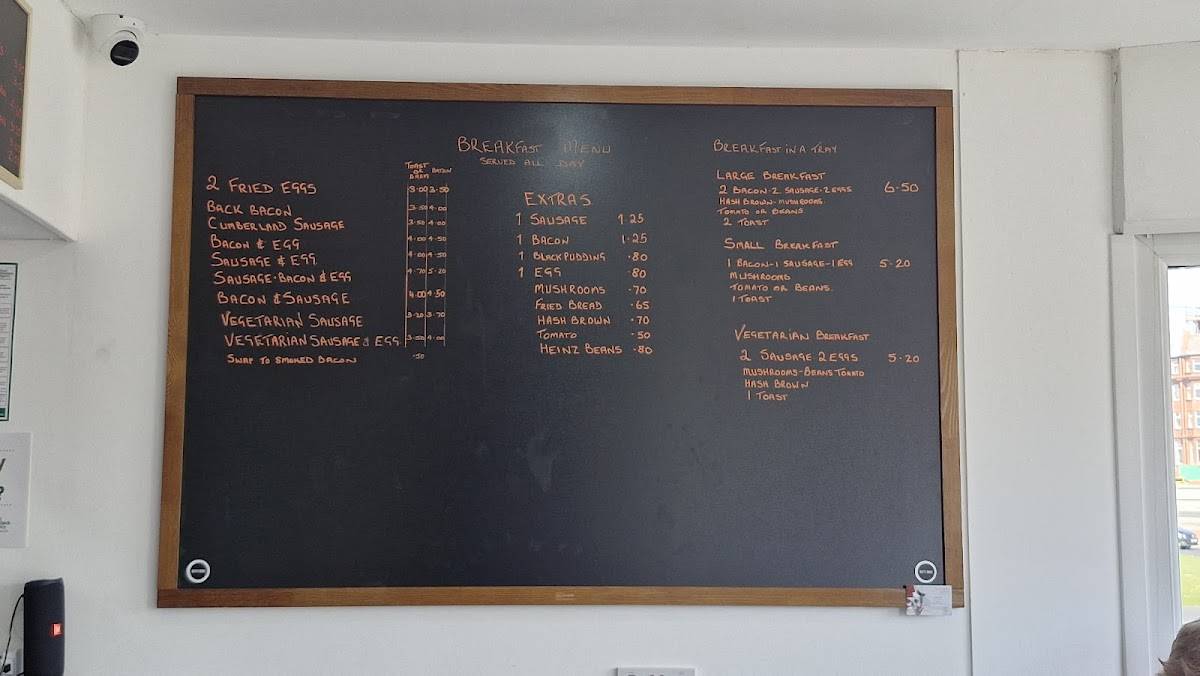 BREAKFAST MENU
SERVED ALL DAY
TOAST OR BARM BATON
2 FRIED EGGS 3.00 3.50
BACK BACON 3.50 4.00
CUMBERLAND SAUSAGE 3.50 4.00
BACON & EGG 4.00 4.50
SAUSAGE & EGG 4.00 4.50
SAUSAGE·BACON & EGG 4.70 5.20
BACON & SAUSAGE 4.00 4.50
VEGETARIAN SAUSAGE 3.20 3.70
VEGETARIAN SAUSAGE & EGG 3.50 4.00
SWAP TO SMOKED BACON .50
EXTRAS
1 SAUSAGE 1.25
1 BACON 1.25
1 BLACK PUDDING .80
1 EGG .80
MUSHROOMS .70
FRIED BREAD .65
HASH BROWN .70
TOMATO .50
HEINZ BEANS .80
BREAKFAST IN A TRAY
LARGE BREAKFAST
2 BACON-2 SAUSAGE-2 EGGS 6.50
HASH BROWN-MUSHROOMS
TOMATO OR BEANS
2 TOAST
SMALL BREAKFAST
1 BACON-1 SAUSAGE-1 EGG 5.20
MUSHROOMS
TOMATO OR BEANS.
1 TOAST
VEGETARIAN BREAKFAST
2 SAUSAGE 2 EGGS 5.20
MUSHROOMS-BEANS TOMATO
HASH BROWN
1 TOAST
JBL